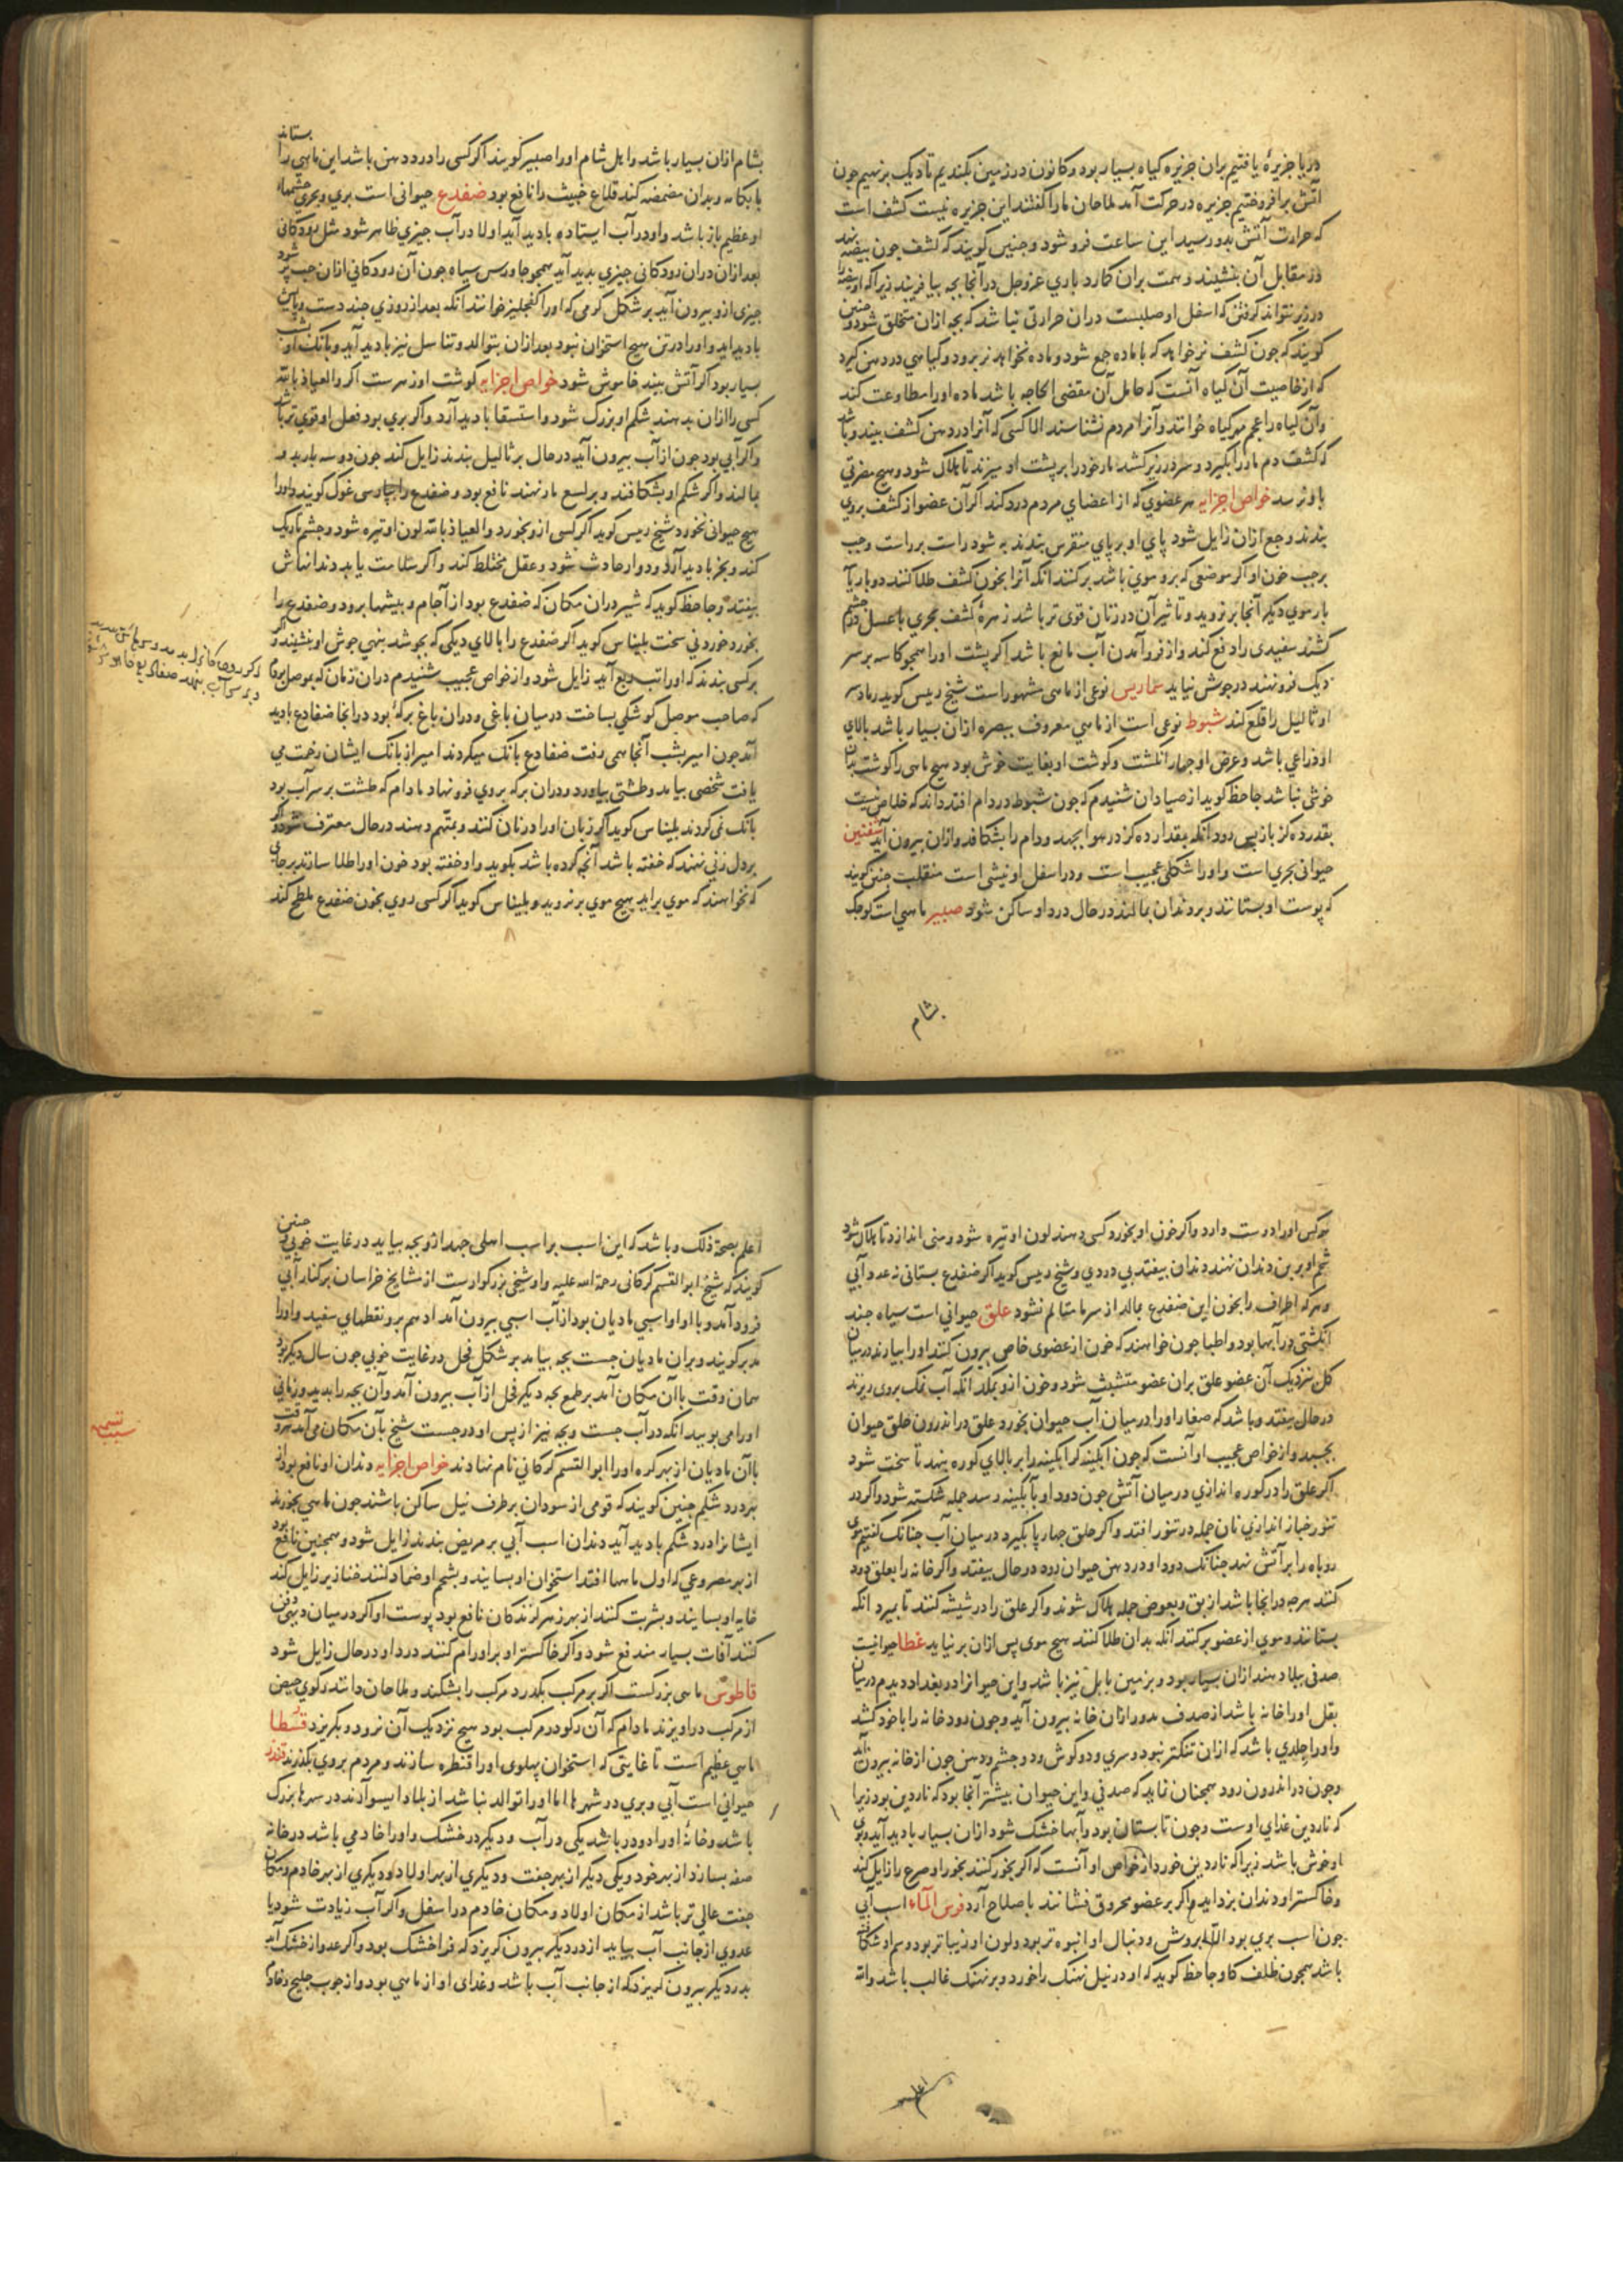 در یا جزیرهٔ یافتیم بران جزیره کیاه بسیار بود و کانون در زمین بکندیم تا دیک برنهیم جون
آتش برافروختیم جزیره در حرکت آمد ملاحان ما را کفتند این جزیره نیست کشف است
که حرارت آتش بدو رسید این ساعت فرو شود و جنین کویند که کشف جون بیضه نهد
در مقابل آن بنشیند و همت بران کارد باری عزوجل در آنجا بجه بیافریند زیرا که او بیضه را
در زیر نتواند کرفتن که اسفل او صلبست دران حرارتی نباشد که بجه ازان متخلق شود و جنین
کویند که جون کشف نر خواهد که با ماده جمع شود و ماده نخواهد نر برود و کیاهی در دهن کیرد
که از خاصیت آن کیاه آنست که حامل آن مقضی الحاجه باشد ماده او را مطاوعت کند
و آن کیاه را عجم مهرکیاه خوانند و آنرا مردم نشناسند الا کسی که آنرا در دهن کشف بیند و باشد
که کشف دم مار را بکیرد و سر در زیر کشد مار خود را بر پشت او میزند تا هلاک شود و هیچ مضرتی
باو نرسد خواص اجزایه هر عضوی که از اعضای مردم درد کند اکر آن عضو از کشف بروی
بندند وجع ازان زایل شود پای او بر پای منقرس بندند به شود راست بر راست و جب
بر جب خون او اکر موضعی که برو موی باشد برکنند انکه آنرا بخون کشف طلا کنند دو بار یا
بار موی دیکر آنجا بر نروید و تاثیر آن در زنان قوی تر باشد زهرهٔ کشف بحری با عسل در چشم
کشند سفیدی را دفع کند و از فرو آمدن آب مانع باشد اکر پشت او را همجو کاسه بر سر
دیک فرو نهند در جوش نیاید سماریس نوعی از ماهی مشهور است شیخ رییس کوید رماد سر
او ثالیل را قلع کند شبوط نوعی است از ماهی معروف ببصره ازان بسیار باشد بالای
او ذراعی باشد و عرض او جهار انکشت و کوشت او بغایت خوش بود هیچ ماهی را کوشت بدان
خوشی نباشد جاحظ کوید از صیادان شنیدم که جون شبوط در دام افتد داند که خلاص نیست
بقدر ده کز باز پس رود انکه بمقدار ده کز در هوا بجهد و دام را بشکافد و ازان بیرون آید شفنین
حیوانی بحری است و او را شکلی عجیب است و در اسفل او نیشی است منقلب جنین کویند
که پوست او بستانند و بر دندان بمالند در حال درد او ساکن شود صبیر ماهی است کوجک
بشام
بشام ازان بسیار باشد و اهل شام او را صبیر کویند اکر کسی را درد دهن باشد این ماهی را بستاند
با بکامه و بدان مضمضه کند قلاع خبیث را نافع بود ضفدع حیوانی است بری و بحری چشمهاء
او عظیم باز باشد و او در آب ایستاده بادید آید اولا در آب جیزی ظاهر شود مثل رودکانی
بعد ازان دران رودکانی جیزی بدید آید همجو جاورس سیاه جون آن رودکانی ازان حب پر شود
جیزی ازو بیرون آید بر شکل کرمی که او را کفجلیز خوانند انکه بعد از روزی جند دست و پایش
بادید اید و او را در تن هیچ استخوان نبود بعد ازان بتوالد و تناسل نیز بادید آید و بانک او بشب
بسیار بود اکر آتش بیند خاموش شود خواص اجزایه کوشت او زهرست اکر والعیاذ بالله
کسی را ازان بدهند شکم او بزرک شود و استسقا بادید آرد و اکر بری بود فعل او قوی تر باشد
و اکر آبی بود جون از آب بیرون آید در حال بر ثالیل بندند زایل کند جون دو سه بار بدو
بمالند و اکر شکم او بشکافند و بر لسع مار نهند نافع بود و ضفدع را بپارسی غوک کویند و او را
هیچ حیوانی نخورد شیخ رییس کوید اکر کسی ازو بخورد والعیاذ بالله لون او تیره شود و جشم تاریک
کند و بخر بادید آرد و دوار حادث شود و عقل مختلط کند و اکر سلامت یابد دندانهاش
بیفتد و جاحظ کوید که شیر دران مکان که ضفدع بود از آجام و بیشها برود و ضفدع را
بخورد خوردنی سخت بلیناس کوید اکر ضفدع را بالای دیکی که بجوشد بنهی جوش او بنشیند و اکر
بر کسی بندند که او را تب ربع آید زایل شود و از خواص عجیب شنیدم دران زمان که بموصل بودم
که صاحب موصل کوشکی بساخت در میان باغی و دران باغ برکهٔ بود در انجا ضفادع بادید
آمد جون امیر بشب آنجا همی رفت ضفادع بانک میکردند امیر از بانک ایشان زحمت می
یافت شخصی بیامد و طشتی بیاورد و دران برکه بروی فرو نهاد مادام که طشت بر سر آب بود
بانک نمی کردند بلیناس کوید اکر زبان او را در نان کنند و بمتهم دهند در حال معترف شود و اکر
بر دل زنی نهند که خفته باشد آنچه کرده باشد بکوید و او خفته بود خون او را طلا سازند بر جای
که نخواهند که موی براید هیچ موی بر نروید و بلیناس کوید اکر کسی روی بخون ضفدع ملطخ کند
هر کس او را دوست دارد و اکر خون او بخورد کسی دهند لون او تیره شود و منی اندازد تا هلاک شود
شحم او بر بن دندان نهند دندان بیفتد بی دردی و شیخ رییس کوید اکر ضفدع بستانی نه عدو آبی
و هر که اطراف را بخون این ضفدع بمالد از سرما متالم نشود علق حیوانی است سیاه جند
انکشتی در آبها بود و اطبا جون خواهند که خون از عضوی خاص بیرون کنند او را بیارند در میان
کل نزدیک آن عضو علق بران عضو متشبث شود و خون ازو بمکد انکه آب نمک بروی ریزند
در حال بیفتد و باشد که صغار او را در میان آب حیوان بخورد و علق در اندرون حلق حیوان
بجسبد و از خواص عجیب او آنست که جون آبکینه کر آبکینه را بر بالای کوره بنهد تا سخت شود
اکر علق را در کوره اندازی در میان آتش جون دود او بآبکینه رسد جمله شکسته شود و اکر در
تنور خباز اندازی نان جمله در تنور افتد و اکر حلق جهارپا بکیرد در میان آب جنانک کفتیم موی
روباه را بر آتش نهد جنانک دود او در دهن حیوان رود در حال بیفتد و اکر خانه را بعلق دود
کنند هرچه در انجا باشد از بق و بعوض جمله هلاک شوند و اکر علق را در شیشه کنند تا بمیرد انکه
بستانند و موی از عضو برکنند انکه بدان طلا کنند هیچ موی پس ازان بر نیاید غطا حیوانیست
صدفی ببلاد هند ازان بسیار بود و بزمین بابل نیز باشد و این حیوانرا در بغداد دیدم در میان
بقل او را خانه باشد از صدف مدور ازان خانه بیرون آید و جون رود خانه را با خود کشد
و او را جلدی باشد که ازان تنکتر نبود و سری و دو کوش و دو جشم و دهن جون از خانه بیرون آید
و جون در اندرون رود همجنان نماید که صدفی و این حیوان بیشتر آنجا بود که ناردین بود زیرا
که ناردین غذای اوست و جون تابستان بود و آبها خشک شود ازان بسیار بادید آید و بوی
او خوش باشد زیرا که ناردین خورد از خواص او آنست که اکر بخور کنند بخور او صرع را زایل کند
و خاکستر او دندان بزداید و اکر بر عضو محروق فشانند باصلاح آرد فرس المآء اسب آبی
جون اسب بری بود الا بروش و دنبال او انبوه تر بود و لون او زیباتر بود و سم او شکافته
باشد همجون ظلف کاو جاحظ کوید که او در نیل نهنک را خورد و بر نهنک غالب باشد والله
اعلم
اعلم بصحة ذلک و باشد که این اسب بر اسب اهلی جهد ازو بجه بیاید در غایت خوبی و جنین
کویند که شیخ ابو القسم کرکانی رحمة الله علیه و او شیخی بزرکوارست از مشایخ خراسان بر کنار آبی
فرود آمد و با او اسبی مادیان بود از آب اسبی بیرون آمد ادهم برو نقطهای سفید و او را
مدبر کویند و بران مادیان جست بجه بیامد بر شکل فحل در غایت خوبی جون سال دیکر بود
همان وقت باآن مکان آمد بر طمع بجه دیکر فحل از آب بیرون آمد و آن بجه را بدید و زمانی
او را می بویید انکه در آب جست و بجه نیز از پس او در جست شیخ بآن مکان می آمد هر وقت
باآن مادیان از بهر کره او را ابوالقسم کرکانی نام نهادند خواص اجزایه دندان او نافع بود از
بهر درد شکم جنین کویند که قومی از سودان بر طرف نیل ساکن باشند جون ماهی بخورند
ایشانرا درد شکم بادید آید دندان اسب آبی بر مریض بندند زایل شود و همجنین نافع بود
از بهر مصروعی که اول ماهها افتد استخوان او بسایند و بشحم او ضماد کنند خنازیر زایل کند
خایه او بسایند و بشربت کنند از بهر زهر کزندکان نافع بود پوست او اکر در میان دیهی دفن
کنند آفات بسیار مندفع شود و اکر خاکستر او بر اورام کنند درد او در حال زایل شود
قاطوس ماهی بزرکست اکر بر مرکب بکذرد مرکب را بشکند و ملاحان دانند رکوی حیض
از مرکب دراویزند مادام که آن رکو در مرکب بود هیچ نزدیک آن نرود و بکریزد قسطا
ماهی عظیم است تا غایتی که استخوان پهلوی او را قنطره سازند و مردم بروی بکذرند قندر
حیوانی است آبی و بری در شهرها اما او را توالد نباشد از بلاد ایسو آرند در نهرهاء بزرک
باشد و خانهٔ او را دو در باشد یکی در آب و دیکر در خشک و او را خادمی باشد در خانه
صفه بسازد از بهر خود و یکی دیکر از بهر جفت و دیکری از بهر اولاد و دیکری از بهر خادم و مکان
جفت عالی تر باشد از مکان اولاد و مکان خادم در اسفل و اکر آب زیادت شود یا
عدوی از جانب آب بیاید از در دیکر بیرون کریزد که فرا خشک بود و اکر عدو از خشک آید
بدر دیکر بیرون کریزد که از جانب آب باشد و غذای او از ماهی بود و از جوب خلیج و خادم